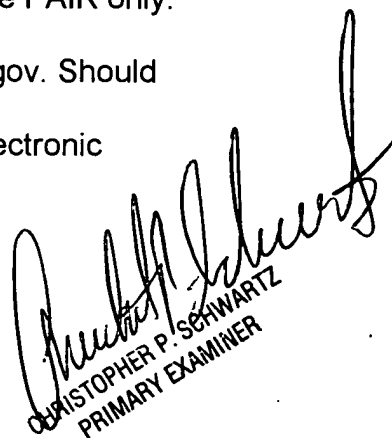 PAIR only.
gov. Should
ectronic
CHRISTOPHER P. SCHWARTZ
PRIMARY EXAMINER